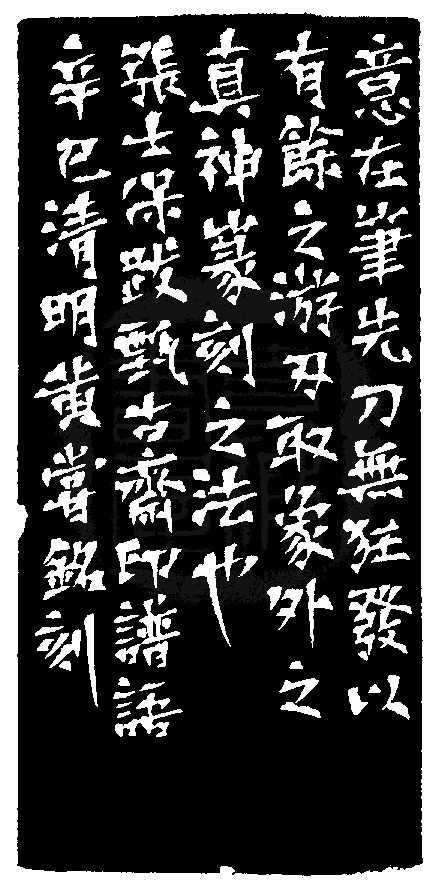 意在筆先刀無狂發以
有餘之游刃取象外之
真神篆刻之法也
張士保跋甄古齋印譜語
辛巳清明黄嘗銘刻